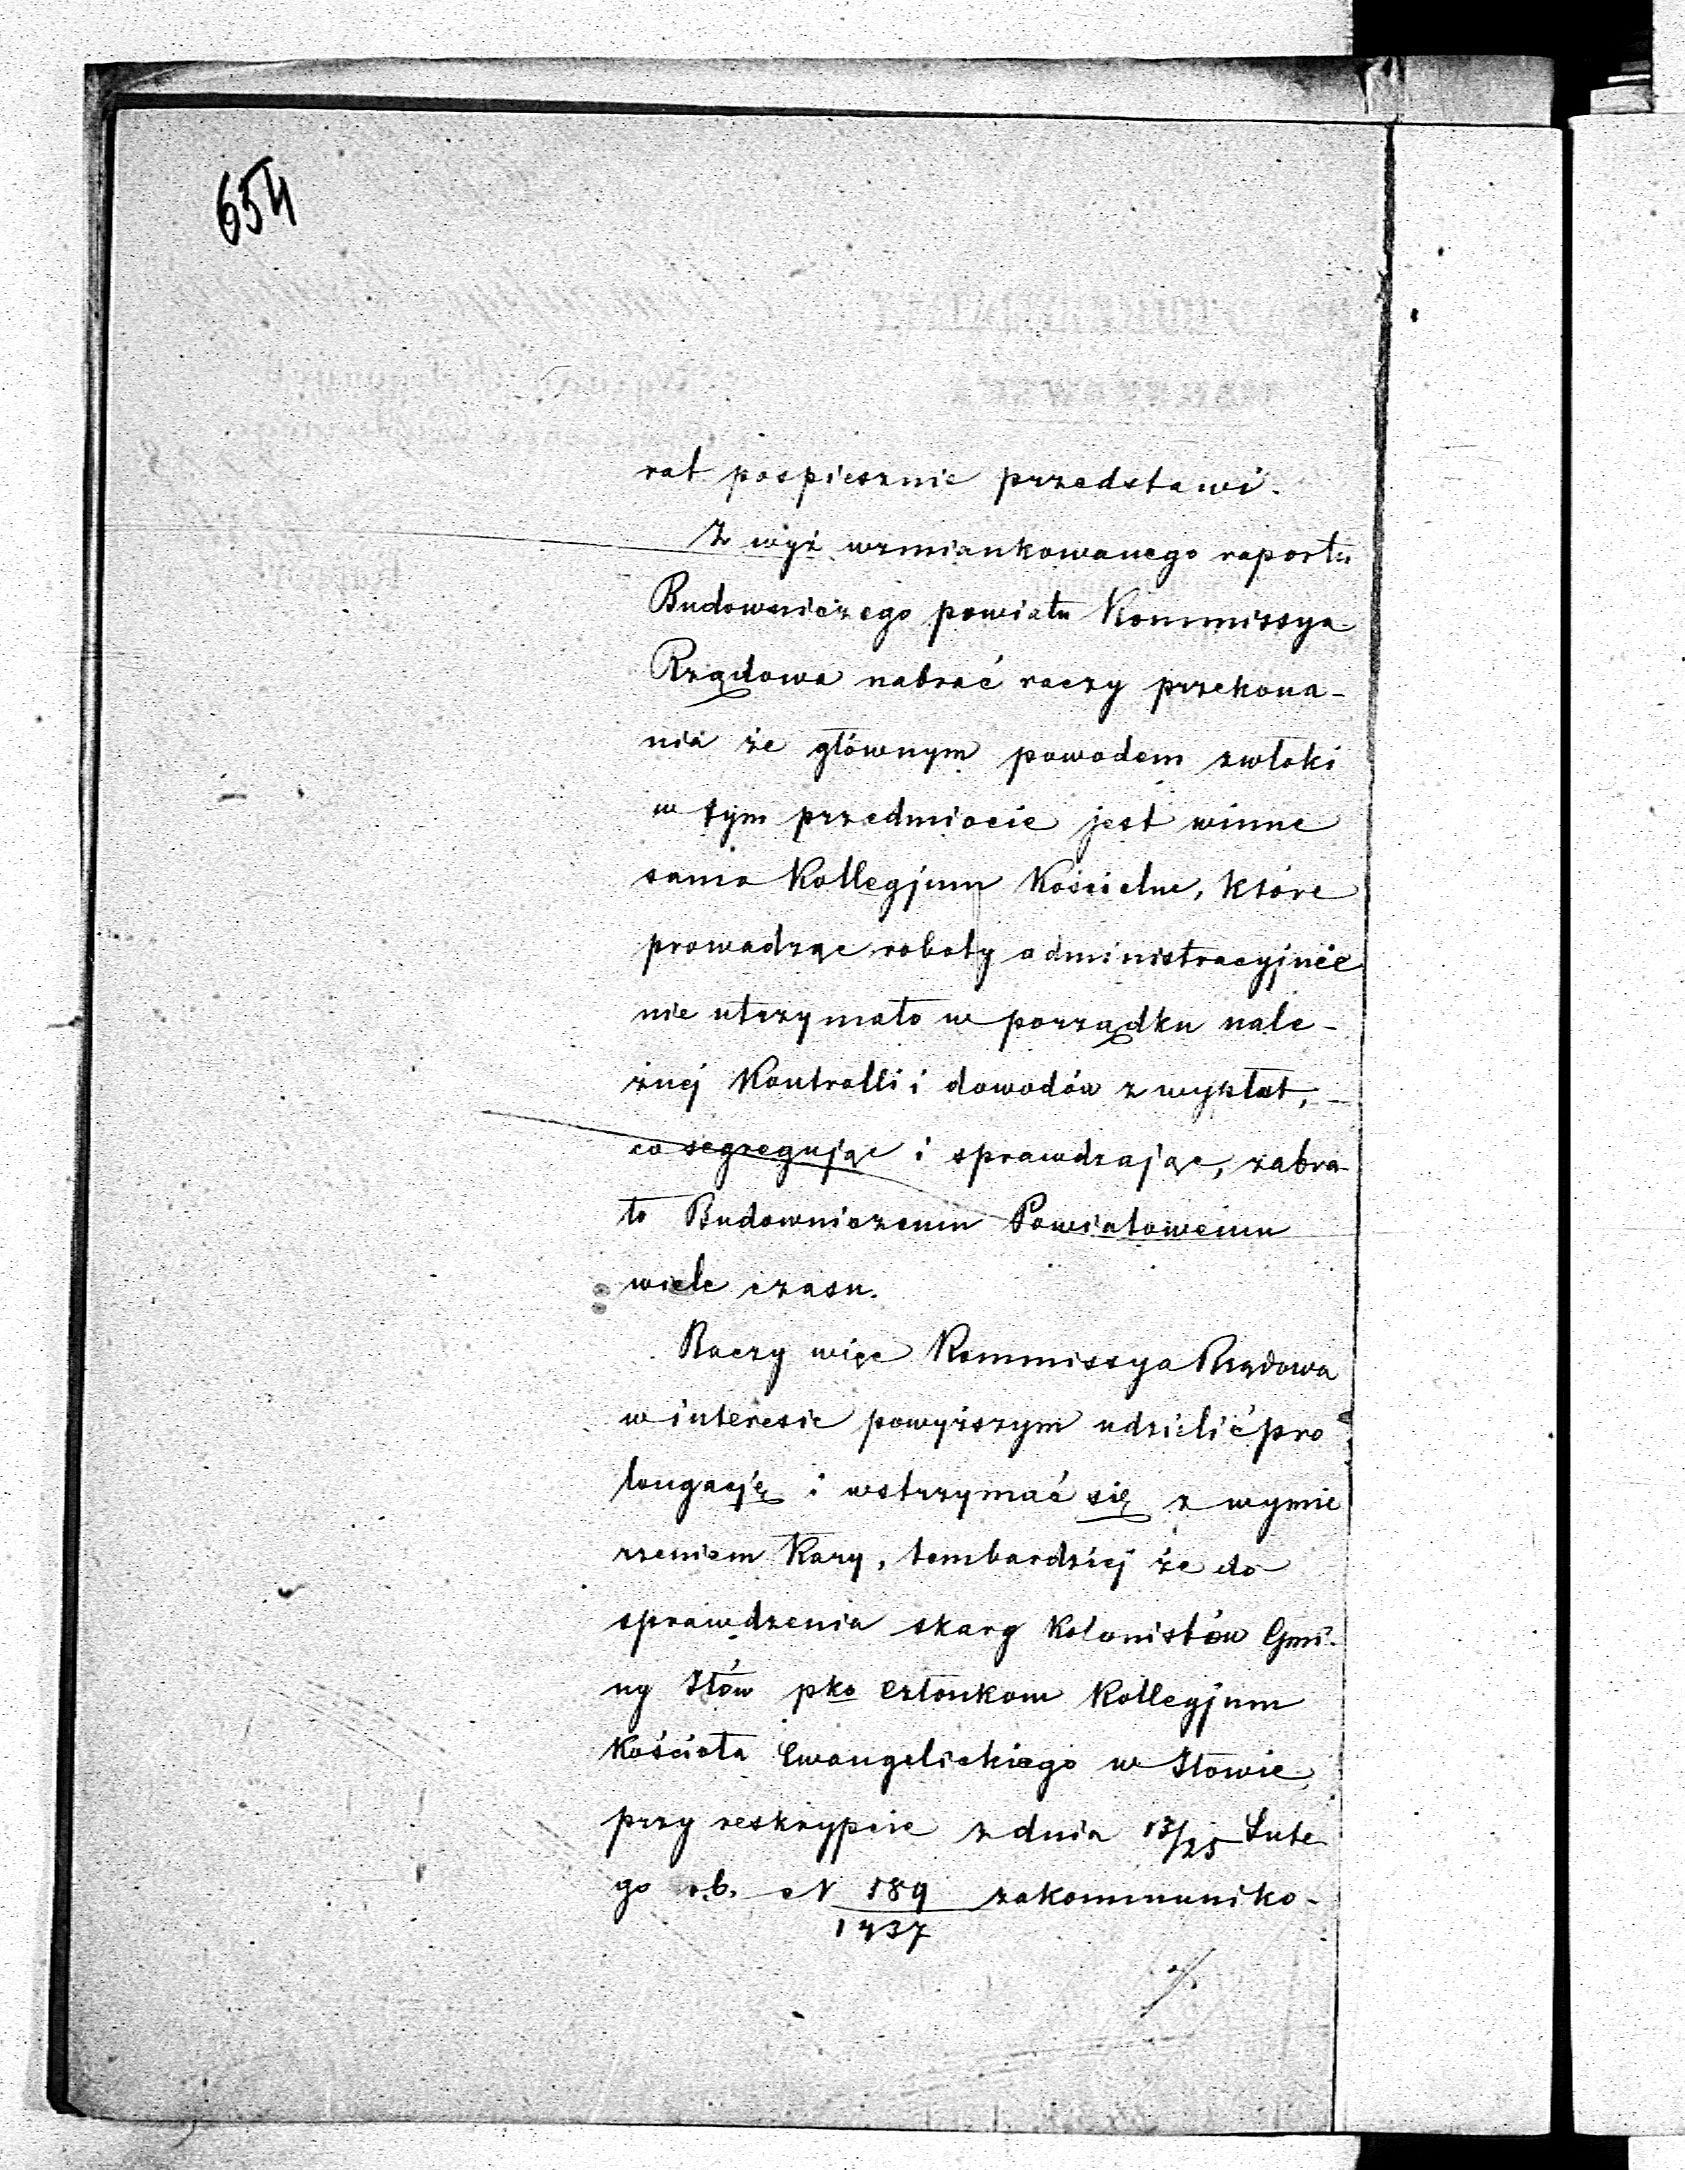 654
rat pospiesznie przedstawi.
Z wyż wzmiankowanego raportu
Budowniczego powiatu Kommissya
Rządowa nabrać raczy przekona-
nia że głównym powodem zwłoki
w tym przedmiocie jest winne
samo Kollegjum Kościelne, które
prowadząc roboty administracyjnie
nie utrzymało w porządku nale-
żnej Kontrolli i dowodów z wypłat, -
co segregując i sprawdzając, zabra-
ło Budowniczemu Powiatowemu
wiele czasu.
Raczy więc Kommissya Rządowa
w interesie powyższym udzielić pro
longację i wstrzymać się z wymie
rzeniem Kary, tembardziej że do
sprawdzenia skarg Kolonistów Gmi-
ny Iłów pko Członkom Kollegjum
Kościoła Ewangelickiego w Iłowie
przy reskrypcie z dnia 13/25 Lute
go r.b. N 189 zakommuniko-
1437